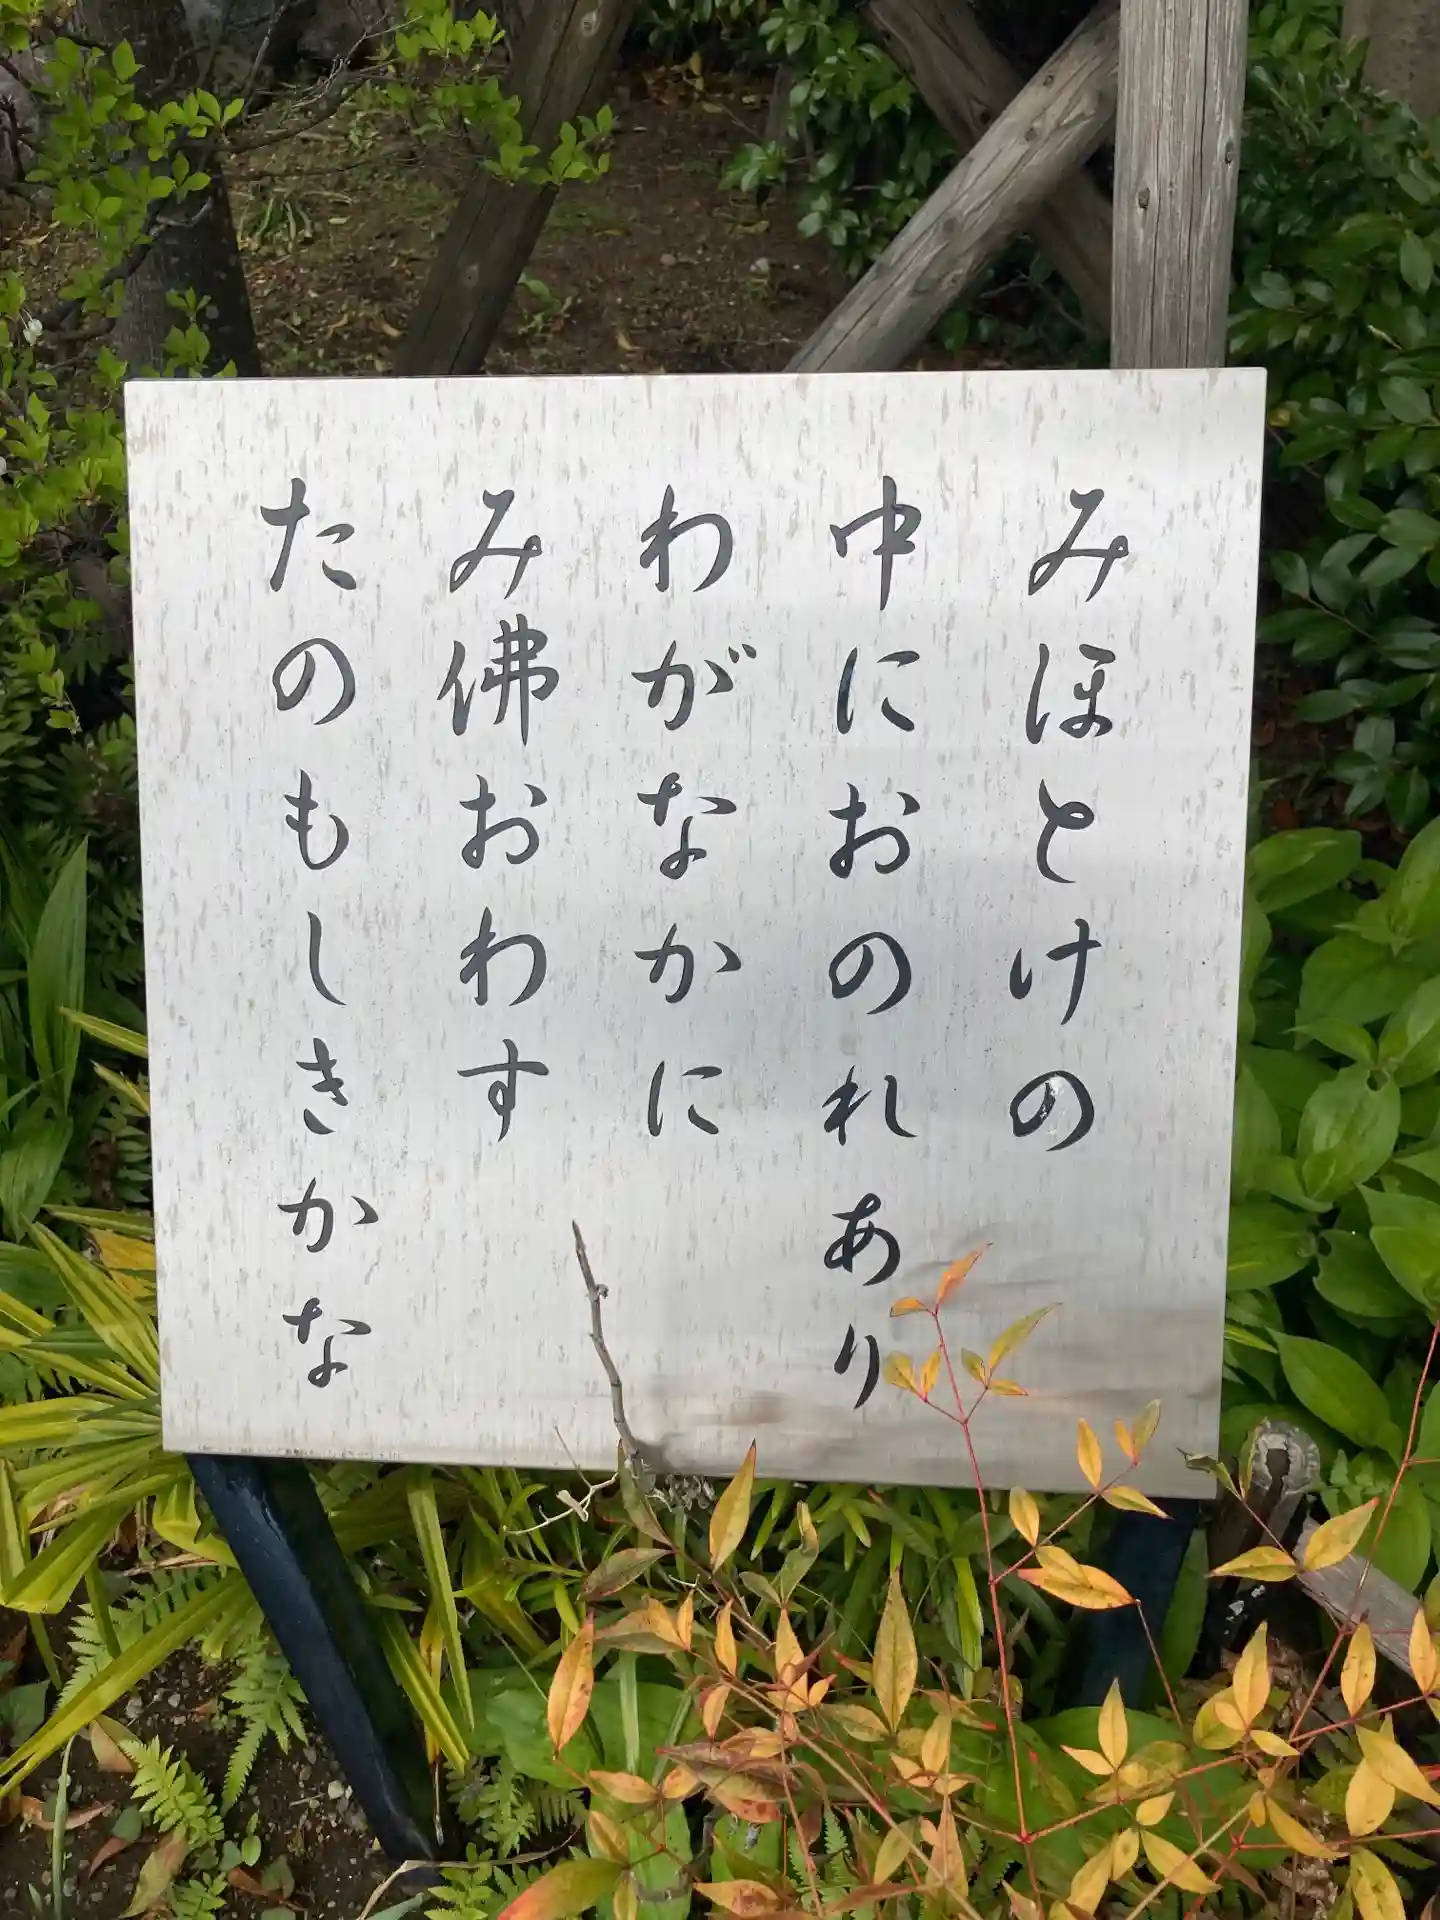 みほとけの
中におのれあり
わがなかに
み佛おわす
たのもしきかな